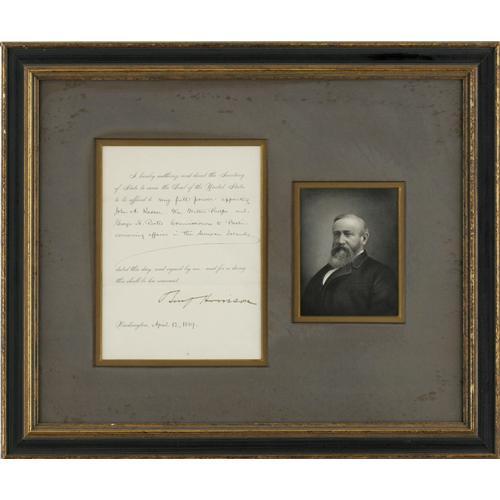 I hereby authorize and direct the Secretary
of State to cause the Seal of the United States
to be affixed to my full power appointing
John A. Kasson, Wm Walter Phelps and
George H. Bates Commissioners to Berlin
concerning affairs in the Samoan Islands
dated this day, and signed by me and for so doing
this shall be his warrant.
Benj Harrison
Washington, April 12, 1889.